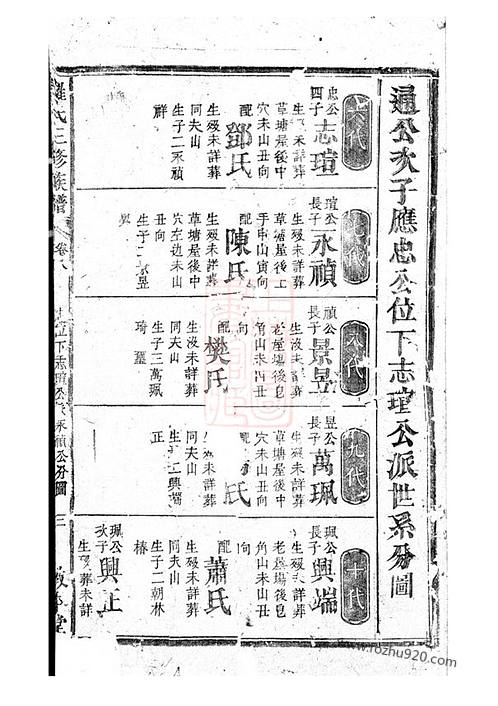 通公次子應忠公位下志瑄公派世系分圖
六代
忠公
四子
志瑄
生歿未詳葬
草塘屋後中
穴未山丑向
配
鄧氏
生歿未詳葬
同夫山
生子二永禎
祥
七代
瑄公
長子
永禎
生歿未詳葬
草塘屋後上
手申山寅向
配
陳氏
生歿未詳葬
草塘屋後中
穴左邊未山
生子二景昱
八代
禎公
長子
景昱
生歿未詳葬
老屋塲後皂
角山未山丑
向
配
樊氏
生歿未詳葬
同夫山
生子三萬珮
琦
九代
昱公
長子
萬珮
生歿未詳葬
草塘屋後中
穴未山丑向
配
氏
生歿未詳葬
同夫山
生子二興端
正
十代
珮公
長子
興端
生歿未詳葬
老屋塲後皂
角山未山丑
向
配
蕭氏
生歿未詳葬
同夫山
生子二朝林
椿
珮公
次子
興正
生歿葬未詳
羅氏三修族譜
卷八
位下志瑄公永禎公分圖
三
堂
www.rozhu920.com